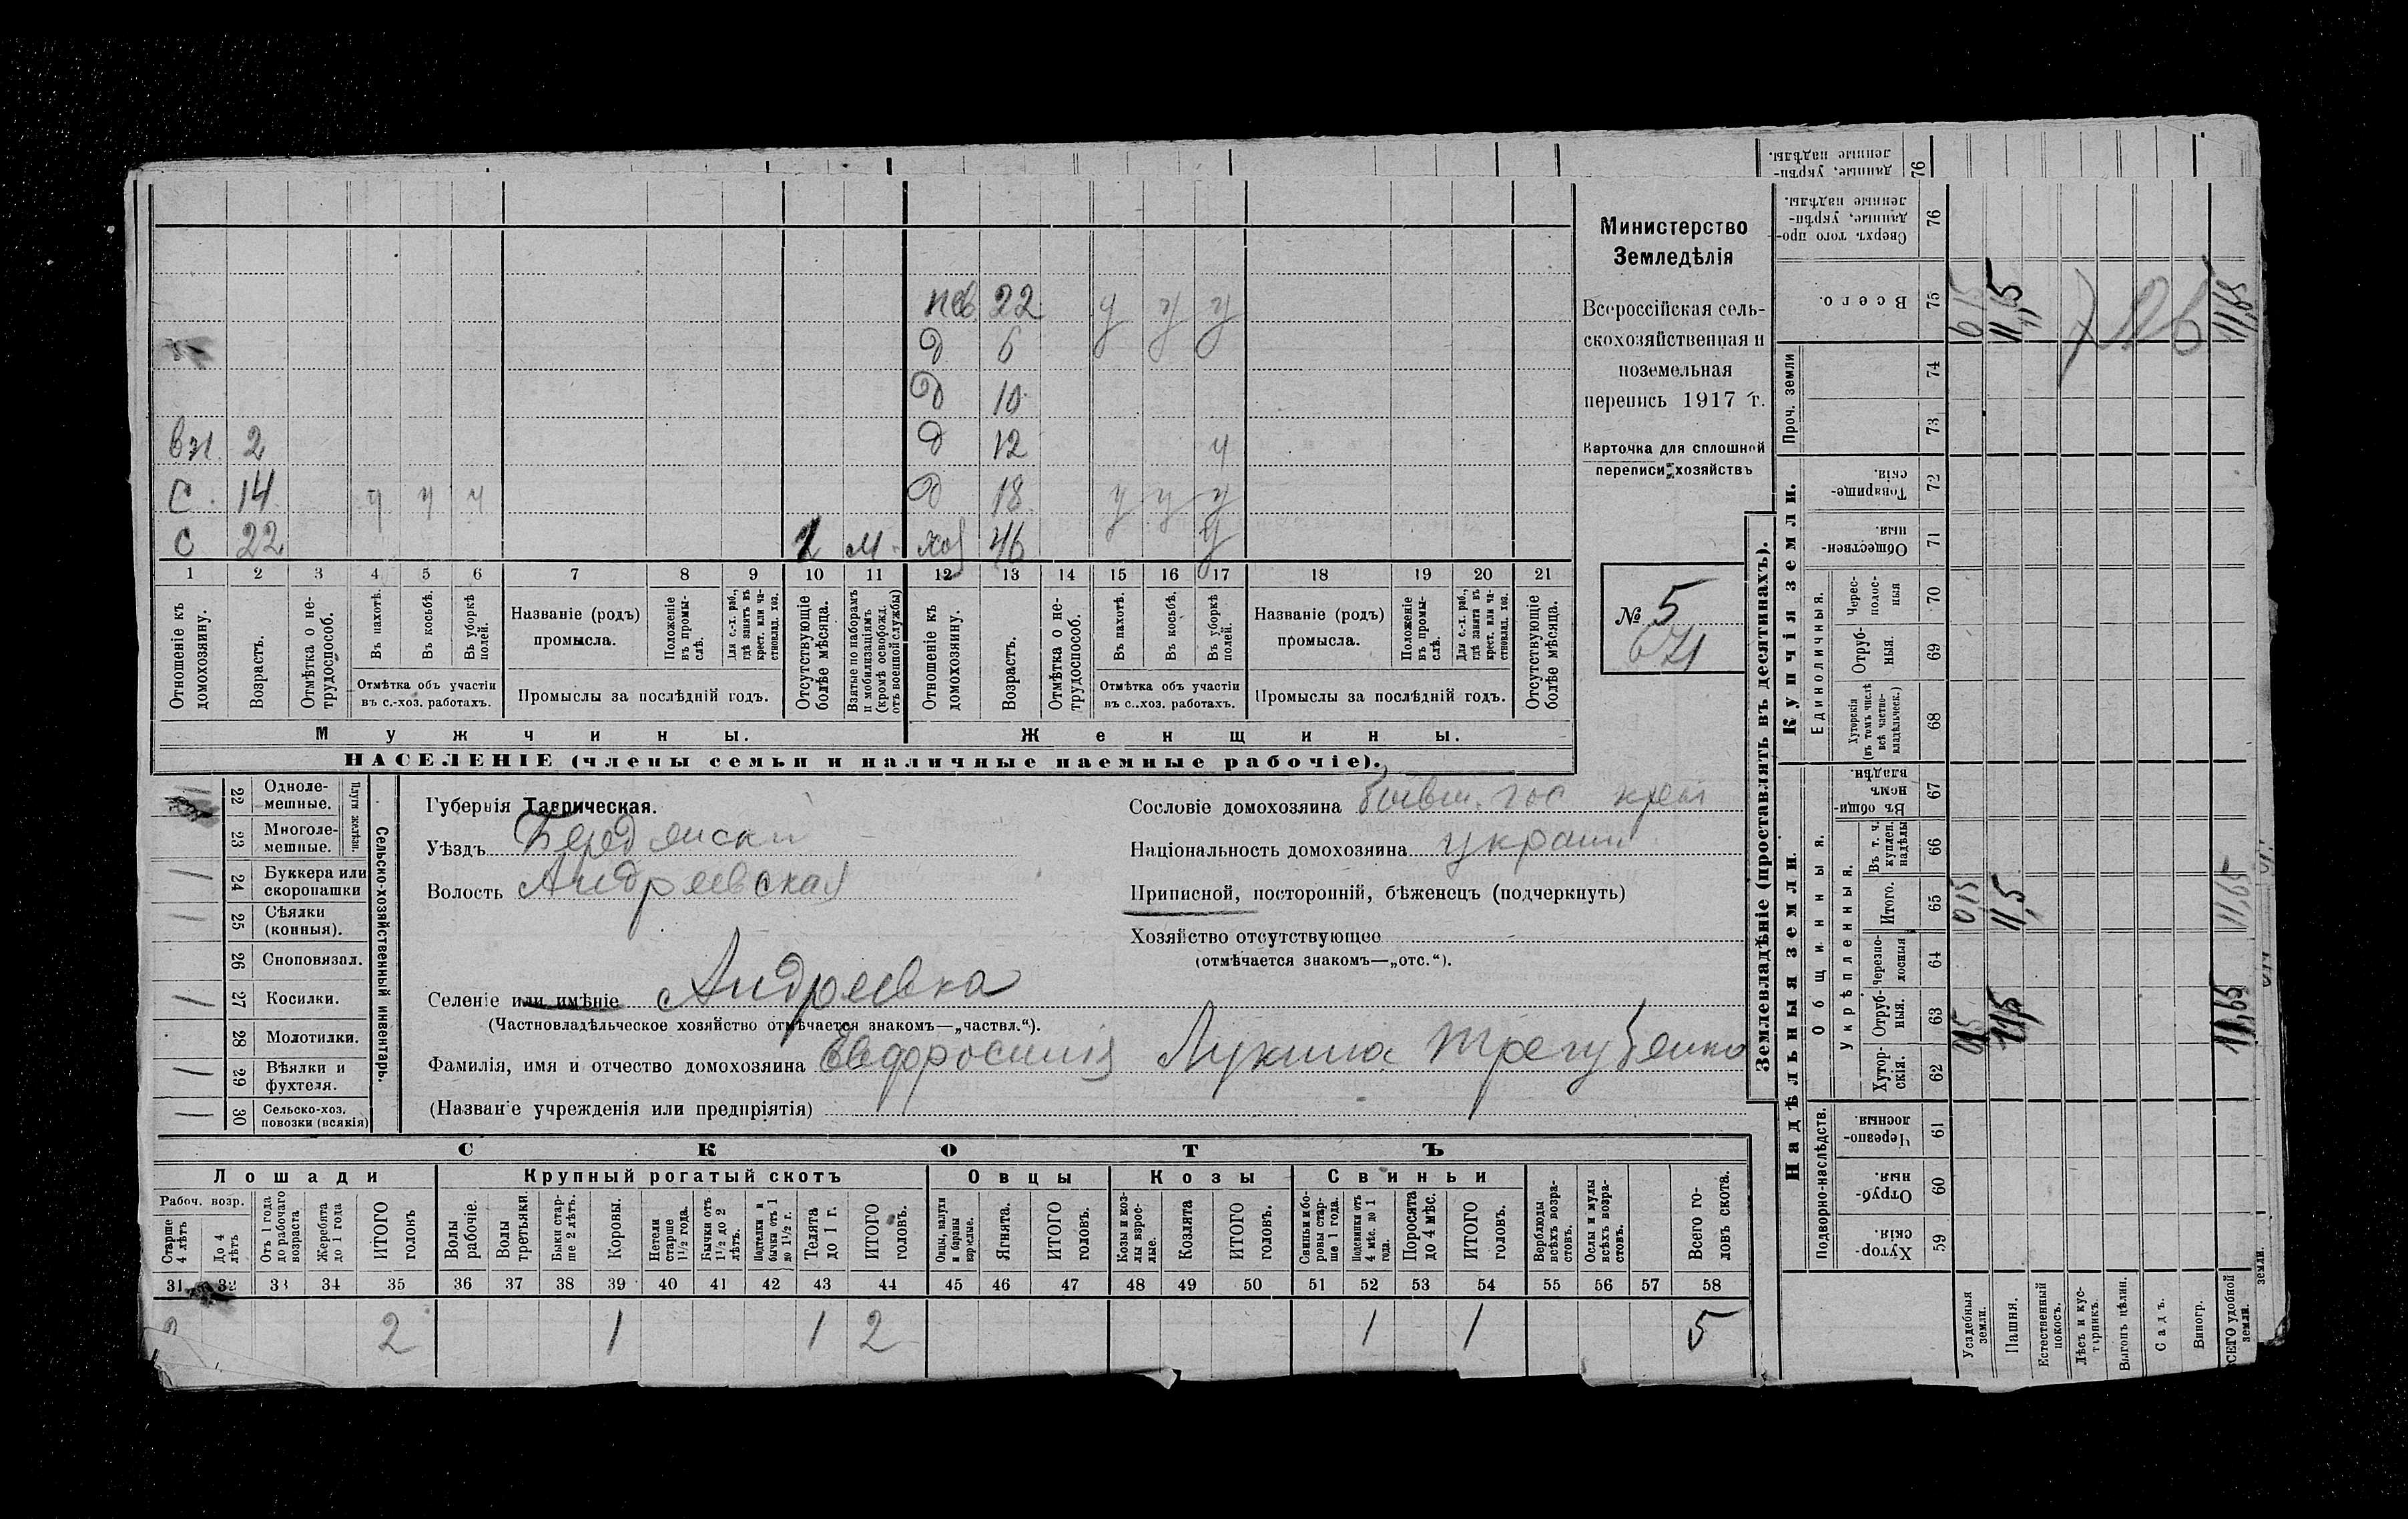 нев. 22 у у у
д 6
д 10
вн. 2 д 12 у
с 14 у у у д 18 у у у
с 22 1 м хоз 46 у
1 2 3 4 5 6 7 8 9 10 11 12 13 14 15 16 17 18 19 20 21
Отношеніе къ домохозяину.
Возрастъ.
Отмѣтка о не-
трудоспособ.
Въ пахотѣ.
Въ косьбѣ.
Въ уборкѣ
полей.
Отмѣтка объ участіи
въ с.-хоз. работахъ.
Названіе (родъ)
промысла.
Положеніе
въ промы-
слѣ.
Для с.-х. раб.,
гдѣ занятъ въ
крест. или ча-
стновлад. хоз.
Промыслы за послѣдній годъ.
Отсутствующіе
болѣе мѣсяца.
Взятые по наборамъ
и мобилизаціямъ
(кромѣ освобожд.
отъ военной службы)
Отношеніе къ
домохозяину.
Возрастъ.
Отмѣтка о не-
трудоспособ.
Въ пахотѣ.
Въ косьбѣ.
Въ уборкѣ
полей.
Отмѣтка объ участіи
въ с..хоз. работахъ.
Названіе (родъ)
промысла.
Положеніе
въ промы-
слѣ.
Для с.-х. раб.,
гдѣ занята въ
крест. или ча-
стновлад. хоз.
Промыслы за послѣдній годъ.
Отсутствующіе
болѣе мѣсяца.
Мужчины. Женщины.
НАСЕЛЕНІЕ (члены семьи и наличные наемные рабочіе).
Министерство
Земледѣлія
Всероссійская сель-
скохозяйственная и
поземельная
перепись 1917 г.
Карточка для сплошной
переписи хозяйствъ
№ 5
671
22 Одноле-
мешные.
23 Многоле-
мешные.
Плуги желѣзн.
24 Буккера или
скоропашки
25 Сѣялки
(конныя).
26 Сноповязал.
27 Косилки.
28 Молотилки.
29 Вѣялки и
фухтеля.
30 Сельско-хоз.
повозки (всякія)
Сельско-хозяйственный инвентарь.
Губернія Таврическая.
Уѣздъ Бердянски
Волость Андреевская
Селеніе или имѣніе Андреевка
(Частновладѣльческое хозяйство отмѣчается знакомъ—„частвл.“).
Фамилія, имя и отчество домохозяина Евдросинія Лукина Трегубенко
(Названіе учрежденія или предпріятія)
Сословіе домохозяина бывш. гос крест
Національность домохозяина украин
Приписной, посторонній, бѣженецъ (подчеркнуть)
Хозяйство отсутствующее
(отмѣчается знакомъ—„отс.“).
СКОТЪ
Лошади Крупный рогатый скотъ Овцы Козы Свиньи
Рабоч. возр.
Старше
4 лѣтъ
До 4
лѣтъ
Отъ 1 года
до рабочаго
возраста
Жеребята
до 1 года
ИТОГО
головъ
Волы
рабочіе.
Волы
третьяки.
Быки стар-
ше 2 лѣтъ.
Коровы.
Нетели
старше
1½ года.
Бычки отъ
1½ до 2
лѣтъ.
Подтелки и
бычки отъ 1
до 1½ г.
Телята
до 1 г.
ИТОГО
головъ.
Овцы, валухи
и бараны
взрослые.
Ягнята.
ИТОГО
головъ.
Козы и коз-
лы взрос-
лые.
Козлята
ИТОГО
головъ.
Свиньи и бо-
ровы стар-
ше 1 года.
Подсвинки отъ
4 мѣс. до 1
года.
Поросята
до 4 мѣс.
ИТОГО
головъ.
Верблюды
всѣхъ возра-
стовъ.
Ослы и мулы
всѣхъ возра-
стовъ.
Всего го-
ловъ скота.
31 32 33 34 35 36 37 38 39 40 41 42 43 44 45 46 47 48 49 50 51 52 53 54 55 56 57 58
2 2 1 1 2 1 1 5
Землевладѣніе (проставлять въ десятинахъ).
Купчія земли.
Надѣльныя земли.
Сверхъ того про-
данные, укрѣп-
ленные надѣлы.
76
Всего. 75 11,5 11,65
Проч. земли
74
73
Товарище-
скія. 72
Обществен-
ныя. 71
Единоличныя.
Черес-
полос-
ныя 70
Отруб-
ныя. 69
Хуторскія
(въ томъ числѣ
всѣ частно-
владѣльческ.) 68
Общинныя.
Въ общи-
нномъ
владѣн. 67
Укрѣпленныя.
Въ т. ч.
куплен.
надѣлы 66
Итого. 65 0,15 11,5 11,65
Черезпо-
лосныя 64
Отруб-
ныя. 63 11,5 11,65
Хутор-
скія. 62
Подворно-наслѣдств.
Черезпо-
лосныя 61
Отруб-
ныя. 60
Хутор-
скія. 59
Усадебныя
земли.
Пашня.
Естественный
покосъ.
Лѣсъ и кус-
тарникъ.
Выгонъ цѣлин.
Садъ.
Виногр.
ВСЕГО удобной
земли.